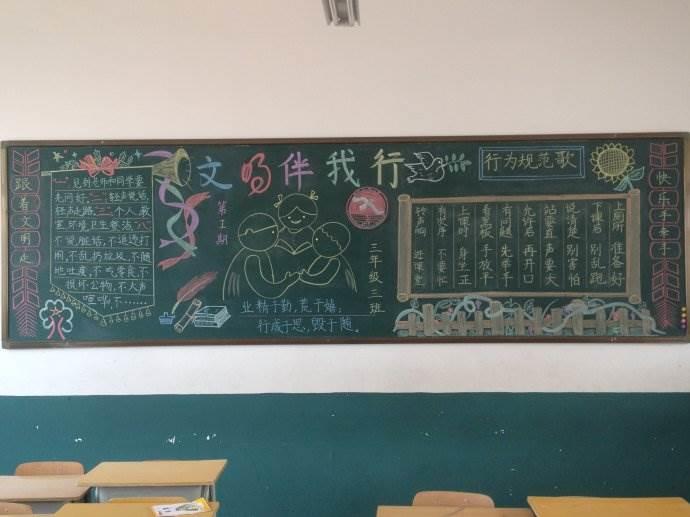 跟着文明走
"一"见到老师和同学要
先问好,"二"轻声慢语,
轻声走路,"三"个人、教
室、环境卫生整洁,"八
不"不骂脏话,不追逐打
闹,不乱扔垃圾,不随
地吐痰,不吃零食,不
损坏公物,不大声
喧哗,不……
文明伴我行
第1期
三年级三班
业精于勤,荒于嬉;
行成于思,毁于随。
行为规范歌
铃声响 进课堂
有秩序 不要忙
上课时 身坐正
看黑板 手放平
有问题 先举手
允许后 再开口
站要直 声要大
说清楚 别害怕
下课后 别乱跑
上厕所 准备好
快乐手牵手